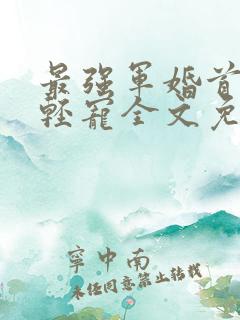 最强军婚首
轻宠全文免
宁中南
未经同意禁止转载